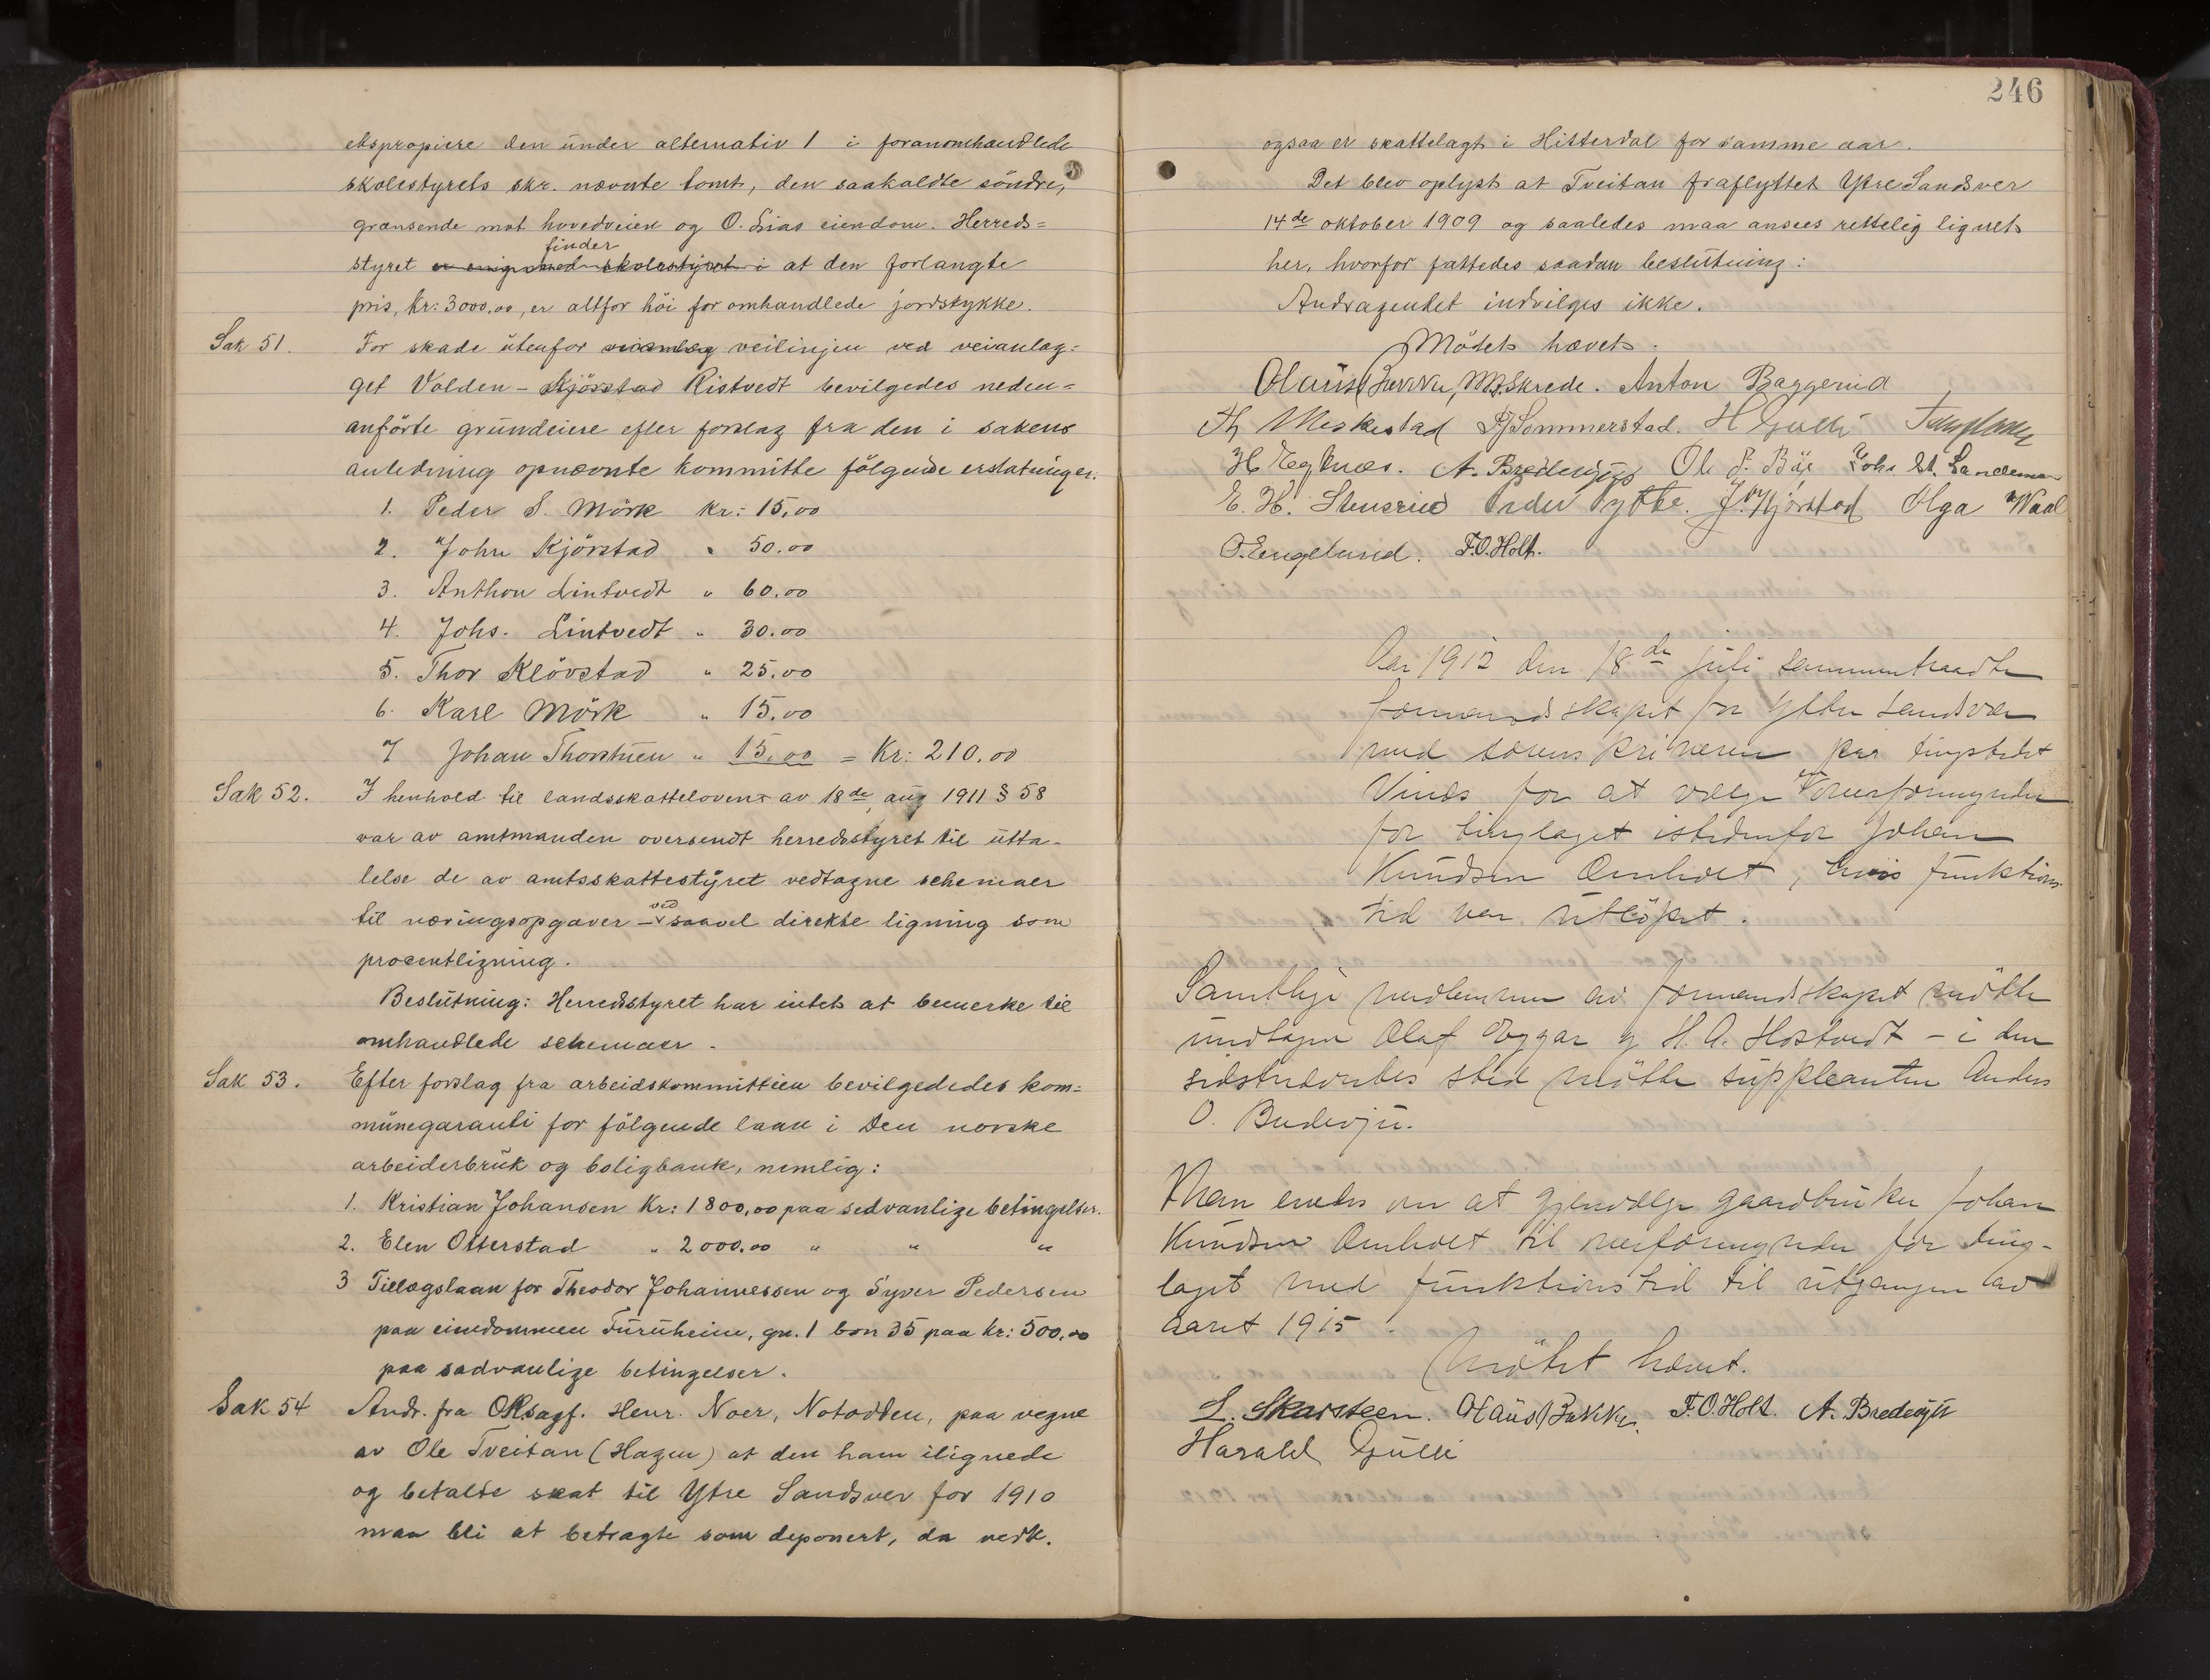 ekspropiere den under alternativ 1 i foranomhandlede
skolestyrets skr. nævnte tomt, den saakaldte söndre,
grænsende mot hovedveien og O. Lias eiendom. Herreds=
finder
styret er enig med skolestyret i at den forlangte
pris, kr: 3000,00, er altfor höi for omhandlede jordstykke.
Sak 51. For skade utenfor veianlæg veilinjen ved veianlæg=
get Volden - Kjörstad Ristvedt bevilgedes neden=
anförte grundeiere efter forslag fra den i sakens
anledning opnævnte kommitte fölgende erstatninger:
1. Peder S. Mörk kr: 15,00
2. John Kjörstad " 50.00
3. Anthon Lintvedt " 60.00
4. Johs. Lintvedt " 30.00
5. Thor Klövstad " 25.00
6. Karl Mörk " 15,00
7 Johan Thorstuen " 15,00 = Kr: 210.00
Sak 52. I henhold til landsskatteloven av 18de aug 1911 § 58
var av amtmanden oversendt herredsstyret til utta-
lelse de av amtsskattestyret vedtagne schemaer
ved
til næringsopgaver - saavel direkte ligning som
procentligning.
Beslutning: Herredsstyret har intet at bemerke til
omhandlede schemaer.
Sak 53. Efter forslag fra arbeidskommitteen bevilgededes kom=
munegaranti for fölgende laan i Den norske
arbeiderbruk og boligbank, nemlig:
1. Kristian Johansen Kr: 1800,00 paa sedvanlige betingelser.
2. Elen Otterstad " 2000.00 " " "
3 Tillægslaan for Theodor Johannessen og Syver Pedersen
paa eiendommen Furuheim, gn. 1 bnr 35 paa kr: 500,00
paa sedvanlige betingelser.
Sak 54 Andr. fra ORsagf. Henr. Noer, Notodden, paa vegne
av Ole Tveitan (Hagen) at den ham ilignede
og betalte skat til Ytre Sandsver for 1910
maa bli at betragte som deponert, da vedk.
246
ogsaa er skattelagt i Hitterdal for samme aar.
Det blev oplyst at Tveitan fraflyttet Ytre Sandsver
14de oktober 1909 og saaledes maa ansees rettelig lignet
her, hvorfor fattedes saadan beslutning:
Andragendet indvilges ikke.
Mödet hævet.
Olaus Bakke, M. Skrede. Anton Baggerud
Th Meskestad Sommerstad. H Gulli
H Tegknæs. A. Bredevju Ole P. Böe Johs St. Landemo
E. H. Stensrud Peder Sytte. J. Kjörstad Olga Waal
O. Englund. F.O. Holt.
Aar 1912 den 18de juli sammentraadte
formandskapet for Ytter Sandsvær
med sorenskriveren paa tingstedet
Vinæs for at vælge overformynder
for tinglaget istedenfor Johan
Knudsen Omholt, hvis funktions
tid var utlöpet.
Samtlige medlemmer av formandskapet mötte
undtagen Olaf Eggar og H. A. Hostvedt - i den
sidstnævntes sted mötte suppleanten Anders
O. Bredevju.
Man enedes om at gjenvælge gaardbruker Johan
Knudsen Omholt til overformynder for ting-
laget med funktionstid til utgangen av
aaret 1915.
Mötet hævet.
L. Skarsteen. Olaus Bakke. F.O. Holt. A. Bredevju
Harald Gulli